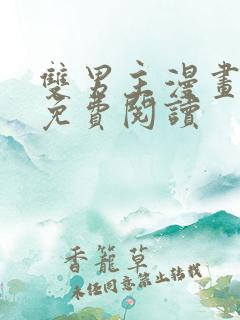 雙男主漫畫
免費閱讀
香籠草
未經同意禁止轉載